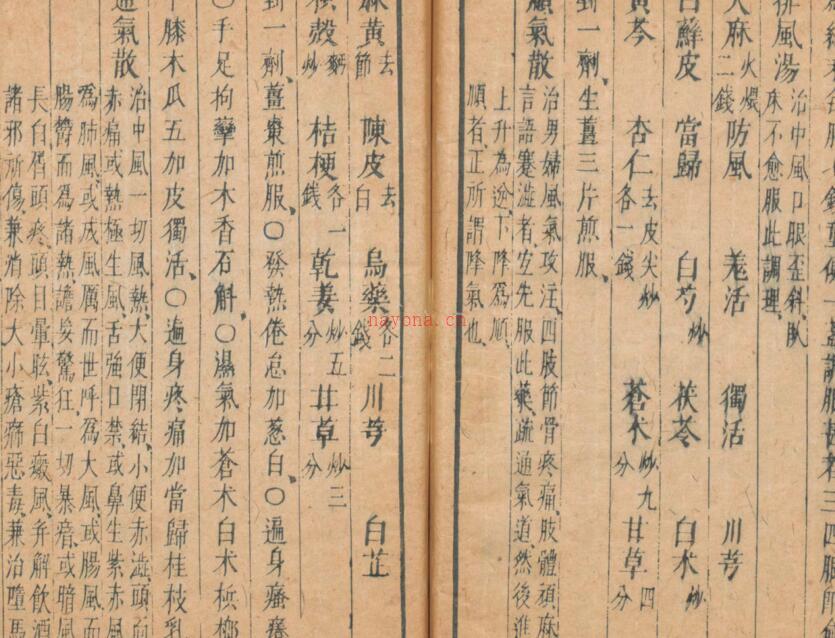 調服甚者三四服即
排風湯 治中風口眼歪斜臥
床不愈服此調理
天麻火煨二錢 防風 羌活 獨活 川芎
白蘚皮 當歸 白芍炒 茯苓 白朮炒
黃芩 杏仁去皮尖炒各一錢 蒼朮炒九分 甘草四分
剉一劑生薑三片煎服
順氣散 治男婦風氣攻注四肢節骨疼痛肢體頑麻
言語蹇澁者宜先服此藥疏通氣道然後進
上升為逆下降為順
順者正所謂降氣也
麻黃去節 陳皮去白 烏藥各二錢 川芎 白芷
枳殼麩炒 桔梗各一錢 乾姜炒五分 甘草炒三分
剉一劑薑棗煎服○發熱倦怠加葱白○遍身瘙痒
○手足拘攣加木香石斛○濕氣加蒼朮白朮檳榔
牛膝木瓜五加皮獨活○遍身疼痛加當歸桂枝乳
通氣散 治中風一切風熱大便閉結小便赤澁頭面
赤痛或熱極生風舌強口禁或鼻生紫赤風
為肺風或成風厲而世呼為大風或腸風而
腸欝而為諸熱譫妄驚狂一切暴瘖或暗風
長白屑頭疼頭目暈眩紫白癜風并解飲酒
諸邪所傷兼消除大小瘡癤惡毒兼治墮馬
nayona.cn